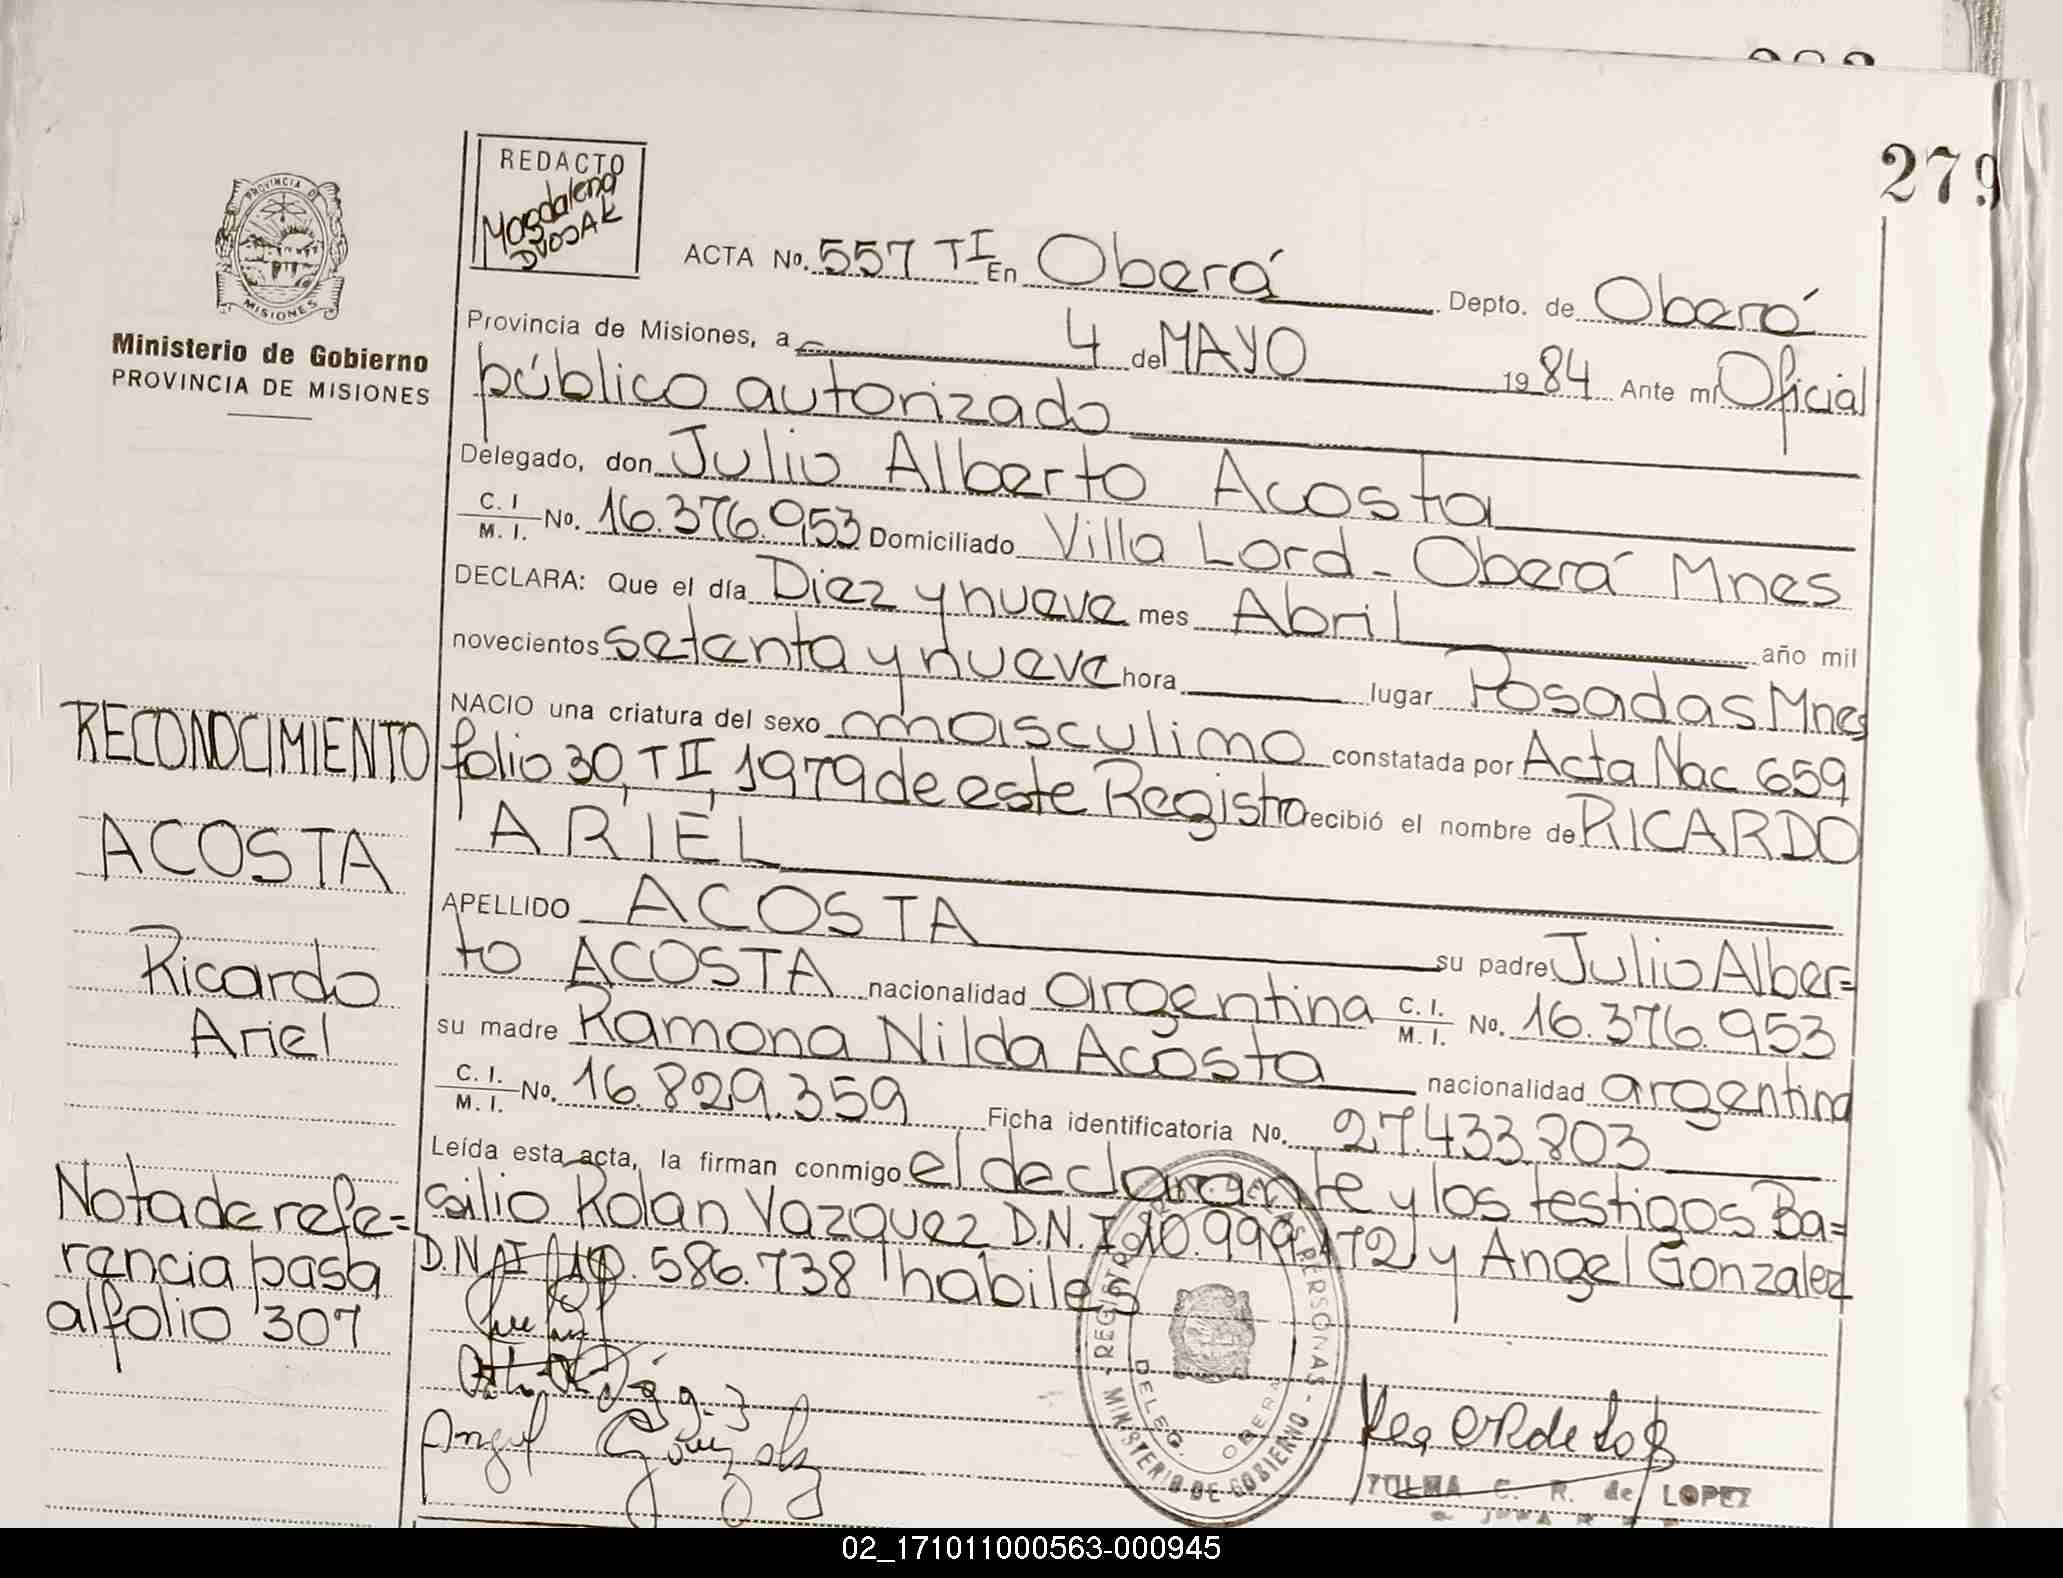 279
REDACTO
Magdalena
DVOSAK
PROVINCIA DE
MISIONES
Ministerio de Gobierno
PROVINCIA DE MISIONES
ACTA No. 557 TI En Oberá Depto. de Oberá
Provincia de Misiones, a 4 de MAYO 1984 Ante mi Oficial
público autorizado
Delegado, don Julio Alberto Acosta
C. I M. I. No. 16.376.953 Domiciliado Villa Lord - Oberá Mnes
DECLARA: Que el día Diez y nueve mes Abril año mil
novecientos setenta y nueve hora lugar Posadas Mnes
NACIO una criatura del sexo masculino constatada por Acta Nac 659
folio 30, T II, 1979 de este Registro recibió el nombre de RICARDO
ARIEL
APELLIDO ACOSTA su padre Julio Alber=
to ACOSTA nacionalidad argentina C. I. M. I. No. 16.376.953
su madre Ramona Nilda Acosta nacionalidad argentina
C. I. M. I. No. 16.829.359 Ficha identificatoria No. 27.433.803
Leída esta acta, la firman conmigo el declarante y los testigos Ba=
silio Rolan Vazquez D.N.I 10.999.172 y Angel Gonzalez
D.N.I 10.586.738 habiles
RECONOCIMIENTO
ACOSTA
Ricardo
Ariel
Nota de refe=
rencia pasa
al folio 307
Angel Gonzalez
REGISTRO DE LAS PERSONAS - MINISTERIO DE GOBIERNO -
DELEG. OBERA
C. R. de LOPEZ
02_171011000563-000945